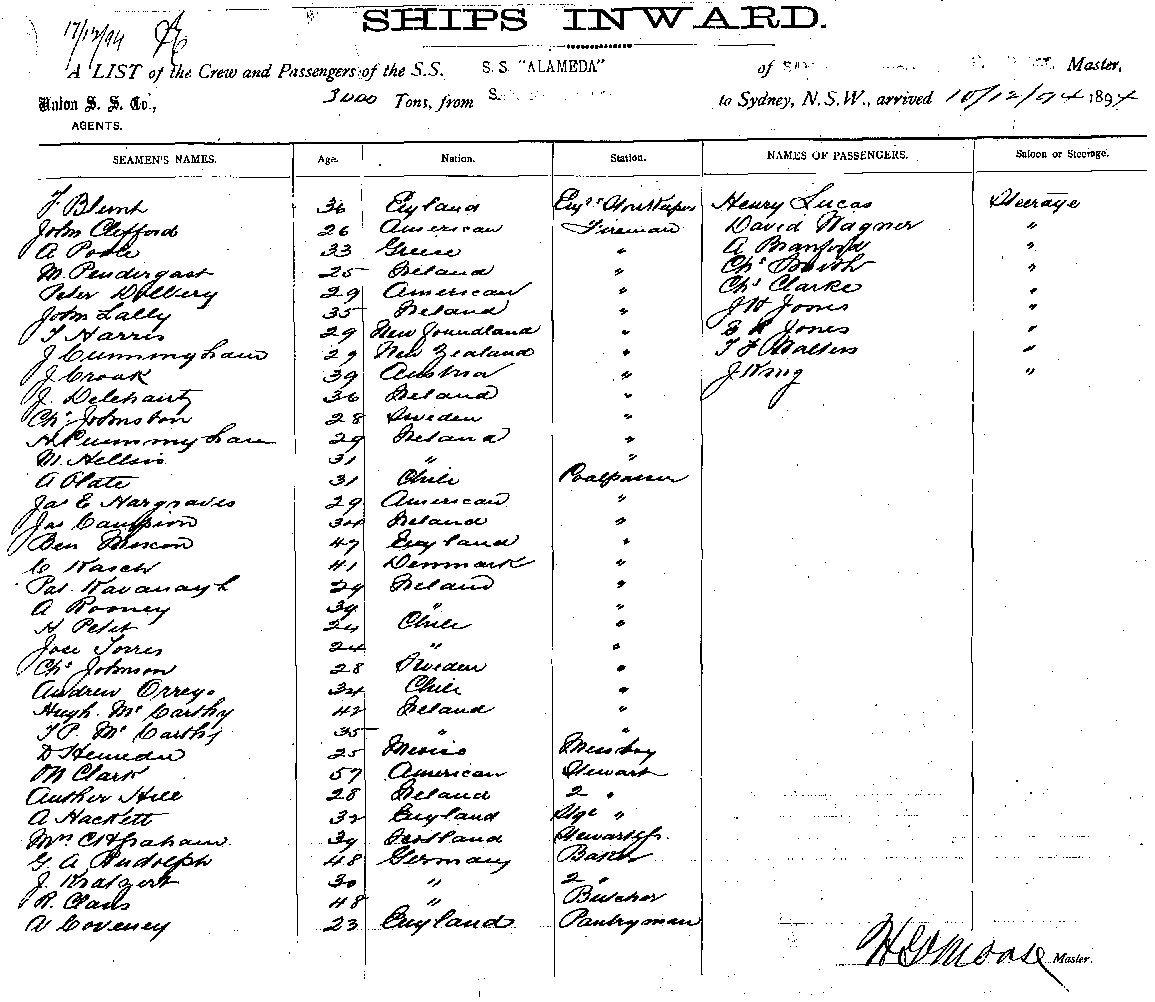 SHIPS INWARD.
17/12/94
A LIST of the Crew and Passengers of the S.S. S.S. "ALAMEDA" of Master,
Union S. S. Co., 3000 Tons, from to Sydney, N.S.W., arrived 10/12/94 1894
AGENTS.
SEAMEN'S NAMES. Age. Nation. Station. NAMES OF PASSENGERS. Saloon or Steerage.
F Blunt 36 England Engrs Storekeeper Henry Lucas Steerage
John Clifford 26 American Fireman David Wagner "
A Poole 33 Greese " A Branford "
M Pendergast 25 Ireland " Chs Smith "
Peter Dolbery 29 American " Chs Clarke "
John Lally 35 Ireland " J H Jones "
T Harris 29 New Foundland " E R Jones "
J Cunningham 29 New Zealand " T F Walters "
J Crook 39 Austria " J King "
J. Delehanty 36 Ireland "
Chs Johnston 28 Sweden "
H Cunningham 29 Ireland "
M. Hellsis 31 " "
A Olate 31 Chile Coalpasser
Jas E Hargraves 29 American "
Jas Campion 34 Ireland "
Ben 47 England "
C Kasch 41 Denmark "
Pat. Kavanagh 29 Ireland "
A Rooney 39 " "
H Petit 24 Chile "
Jose Torres 24 " "
Chs Johnson 28 Sweden "
Andrew Orrego 34 Chile "
Hugh Mc Carthy 42 Ireland "
T P. Mc Carthy 35 " "
D 25 Mexico Messboy
M Clark 57 American Stewart
Auther Hill 28 Ireland 2 "
A Hackett 32 England Stge "
Mrs C H Graham 39 Scotland Stewartss.
G A Rudolph 48 Germany Baker
J. Kratzert 30 " 2 "
R. Claus 48 " Butcher
A Coveney 23 England Pantryman
H G Morse Master.